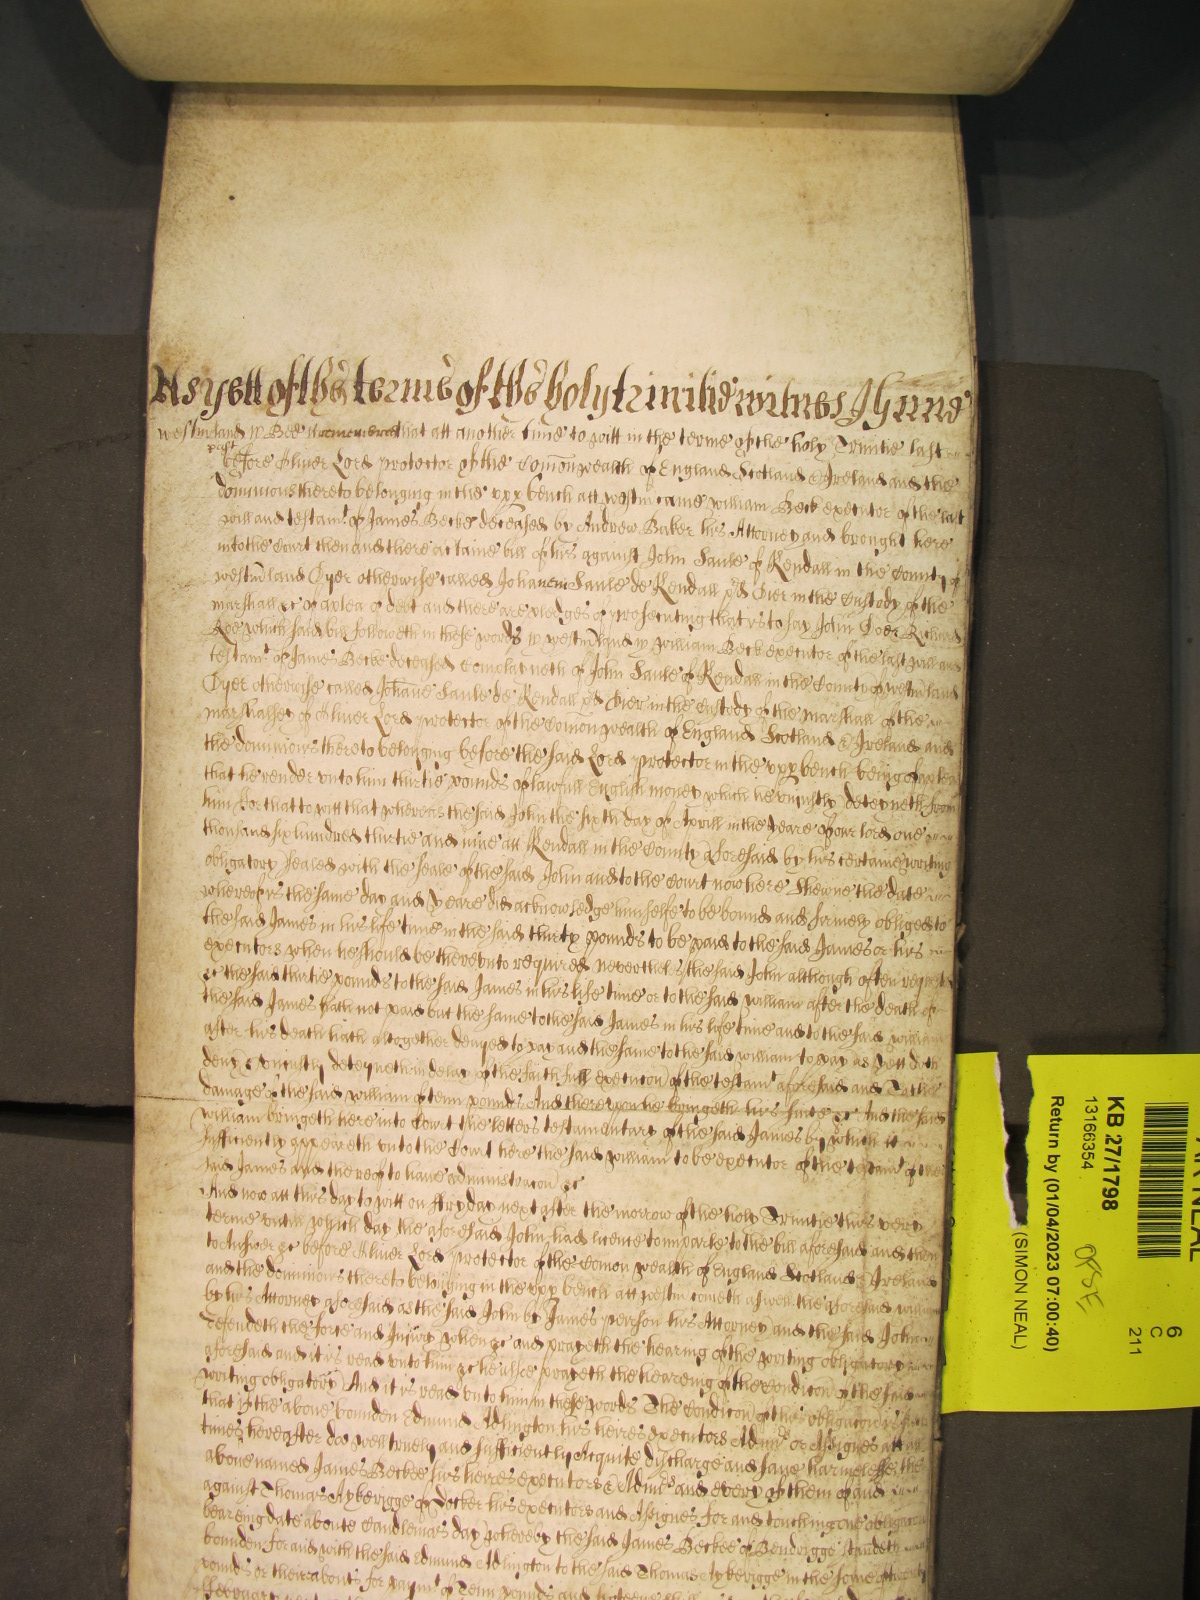 As yett of the terme of the holy trinitie witnes
westmland ss Bee it remembred that att another time to witt in the terme of the holy Trinitie last
past
before Oliver Lord protector of the Comonwealth of England Scotland & Ireland and the
dominions thereto belonging in the upp bench att westm came william Beck executor of the last
will and testamt of James Becke deceased by Andrew Baker his Attorney and brought here
into the Court then and there a certaine bill of his against John Saule of Kendall in the County of
westmland Dyer otherwise called Johanem Saule de Kendall pd Dier in the Custody of the
marshall &c of a plea of debt and there are pledges of prosecuting that is to say John Doe & Richard
Roe which said bill followeth in these words ss westmland ss william Beck executor of the last will and
testamt of James Becke deceased complaineth of John Saule of Kendall in the County of westmland
Dyer otherwise called Johane Saule de Kendall pd Dier in the Custody of the marshall of the
marshalsey of Oliver Lord protector of the Comon wealth of England Scotland & Ireland and
the dominions thereto belonging before the said Lord protector in the upp bench being of a plea
that he render unto him thirtie pounds of lawfull English money which he uniustly deteyneth from
him For that to witt that whereas the said John the sixth day of Aprill in the yeare of our lord one
thousand six hundred thirtie and nine att Kendall in the County aforesaid by his certaine writing
obligatory sealed with the seale of the said John and to the Court now here shewne the date
whereof is the same day and yeare did acknowledge himselfe to be bound and firmely obliged to
the said James in his life time in the said thirty pounds to be paid to the said James or his
executors when he should be thereunto required neverthelesse the said John although often request
&c the said thirtie pounds to the said James in his life time or to the said william after the death of
the said James hath not paid but the same to the said James in his life time and to the said william
after his death hath altogether denyed to pay and the same to the said william to pay as yett doth
deny & uniustly deteyneth in delay of the faithfull execucon of the testamt aforesaid and To the
damage of the said william of tenn pounds And thereupon he bringeth his suite &c And the said
william bringeth here into Court the letters testamentary of the said James by which it
sufficiently appeareth unto the Court here the said william to be executor of the testamt of the
said James and thereof to have administracon &c
And now att this day to witt on ffryday next after the morrow of the holy Trinitie this very
terme untill which day the aforesaid John had licence to imparle to the bill aforesaid and then
to Answer &c before Oliver Lord protector of the Comon wealth of England Scotland & Ireland
and the dominions thereto belonging in the upp bench att westm cometh aswell the aforesaid william
by his Attorney aforesaid as the said John by James person his Attorney and the said John
defendeth the force and Iniury when &c and prayeth the hearing of the writing obligatory
aforesaid and it is read unto him &c he alsoe prayeth the heareing of the Condicon of the said
writing obligatory And it is read unto him in these words The Condicon of this obligacon is
that if the above bounden Edmund Adlington his heires executors Adminrs or Assignes att all
times hereafter doe well truely and sufficiently Acquite discharge and save harmelesse the
above named James Beckee his heires executors & Adminrs and every of them of and
against Thomas Rykerigge of Docker his executors and Assignes for and touching one obligacon
beareing date aboute Candlemas day whereby the said James Beckee of Bendrigge standeth
bounden for and with the said Edmund Adlington to the said Thomas Rykerigge in the some of twenty
pounds or thereabouts for paymt of Tenn pounds and
KB 27/1798
13166354
Return by (01/04/2023 07:00:40)
(SIMON NEAL)
6
C
211